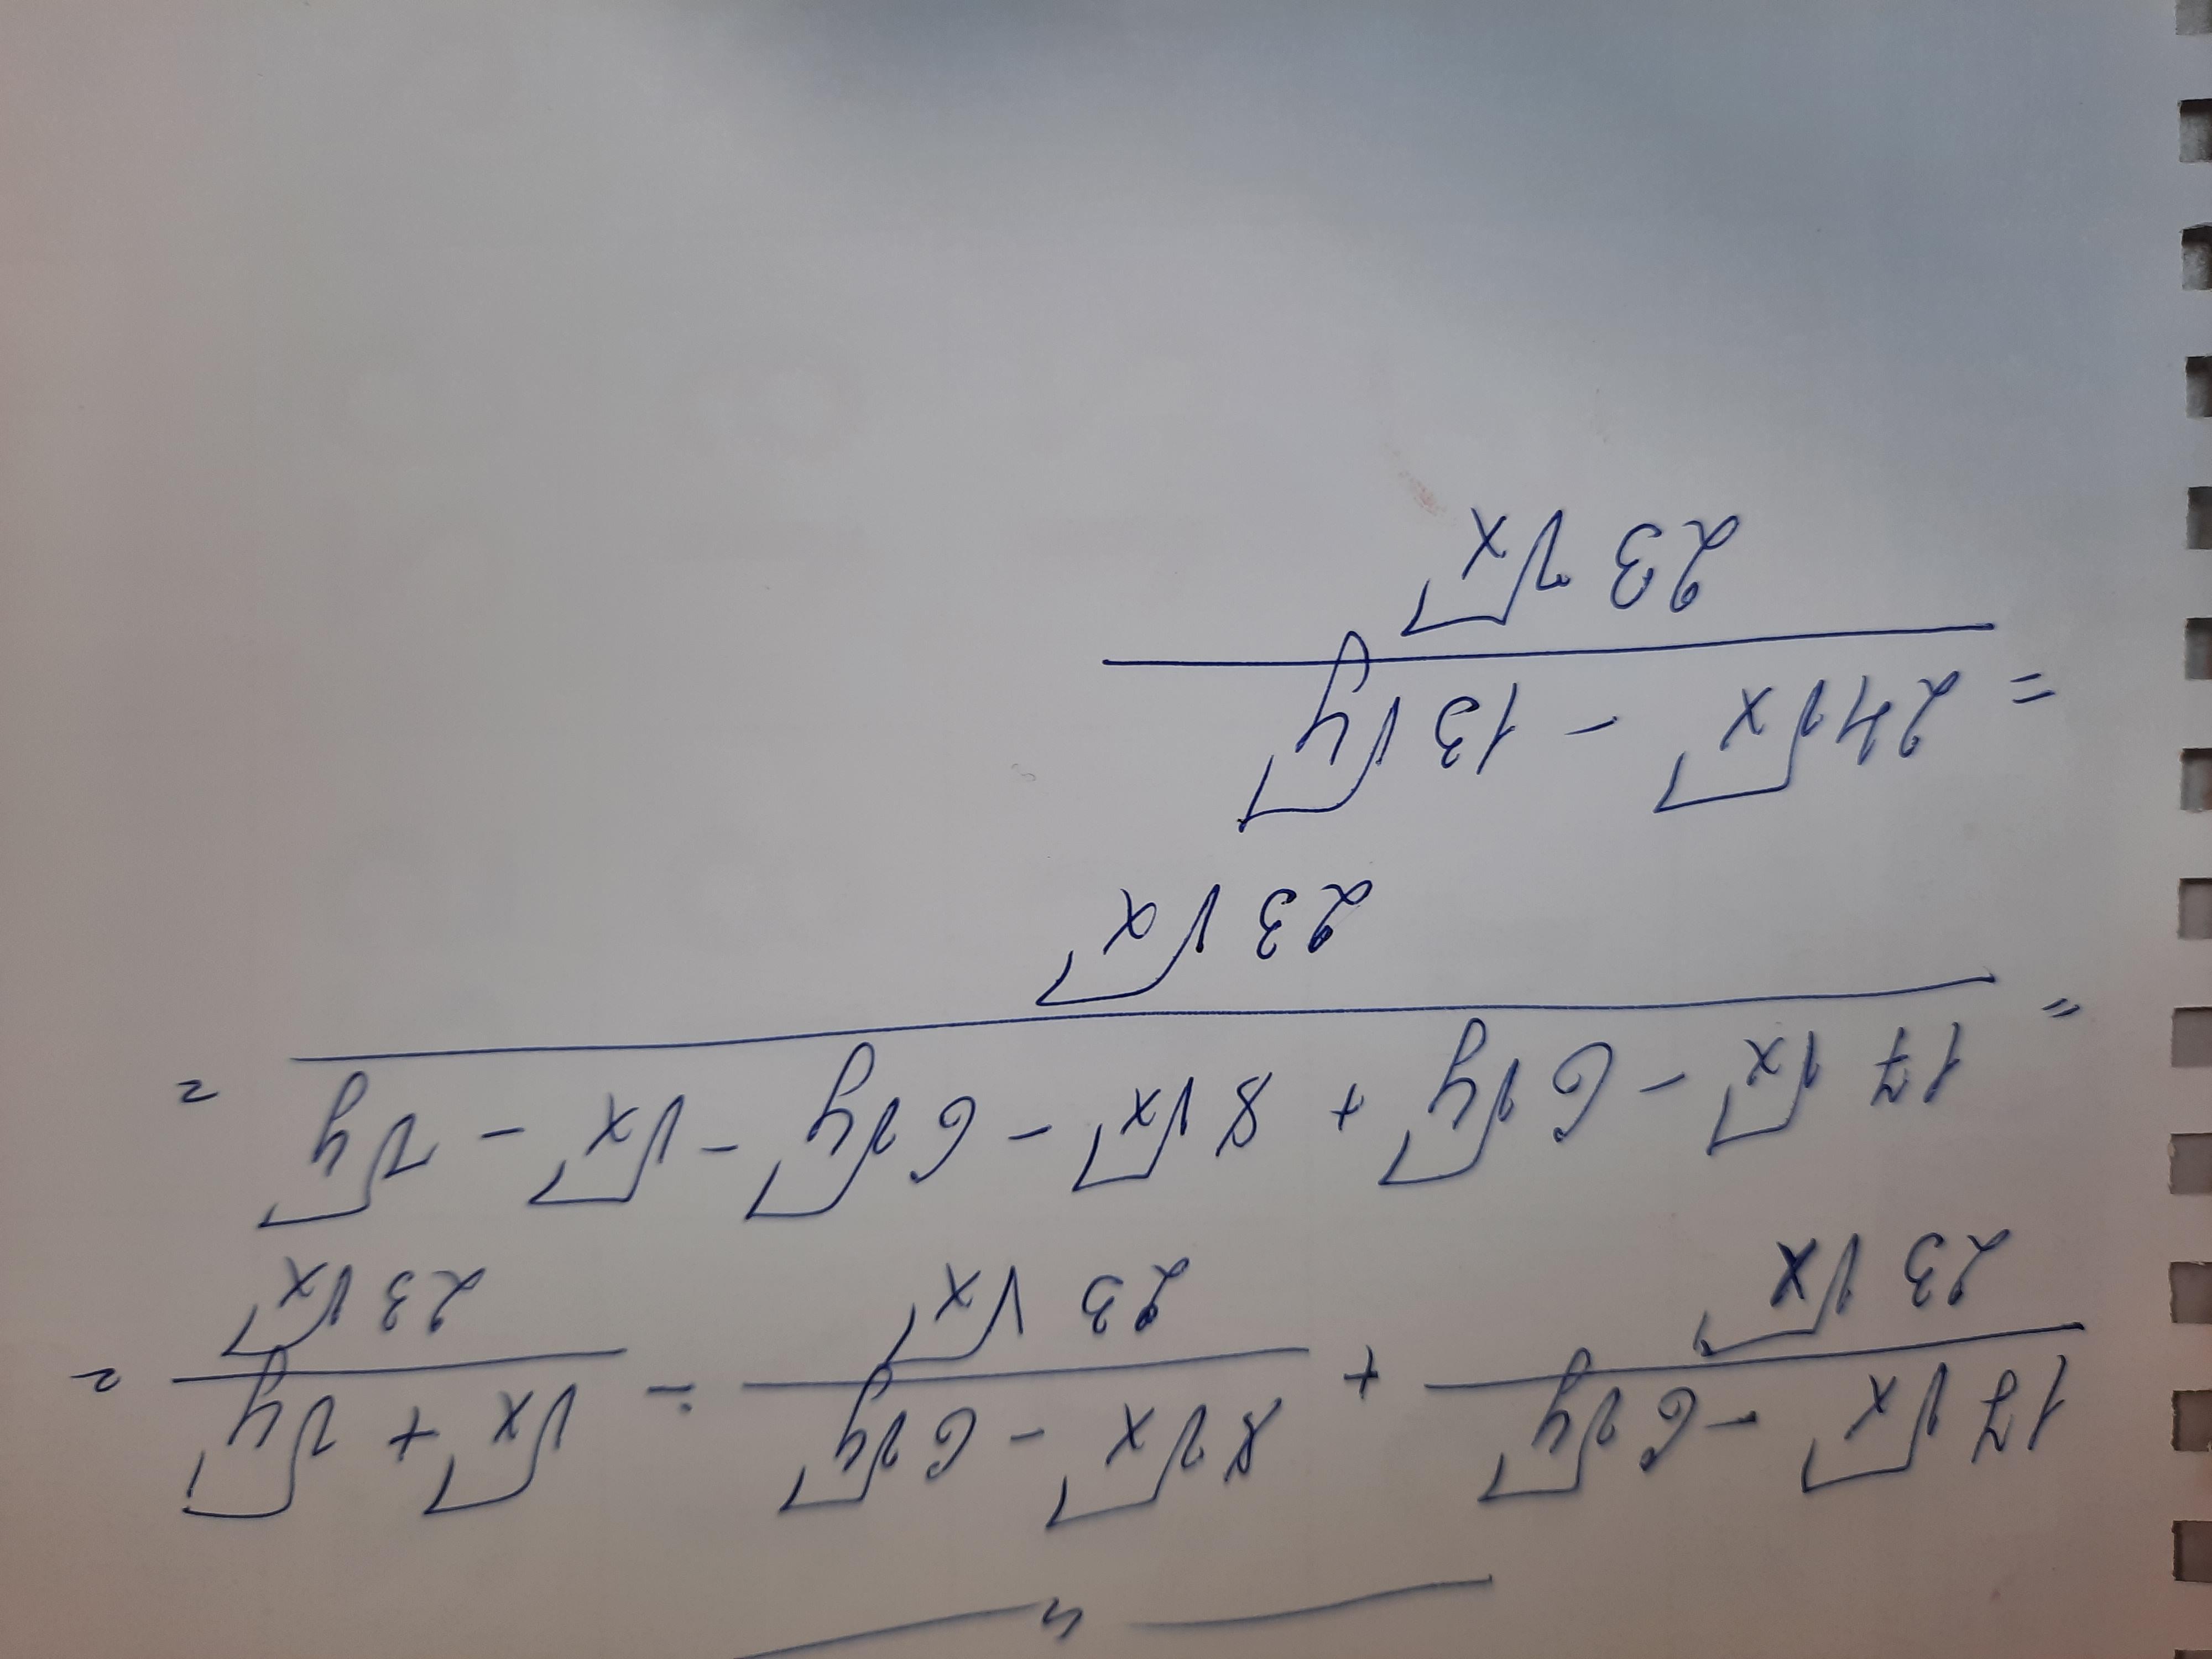 — " —
17√x - 6√y / 23√x + 8√x - 6√y / 23√x - √x + √y / 23√x =
= 17√x - 6√y + 8√x - 6√y - √x - √y / 23√x =
= 24√x - 13√y / 23√x